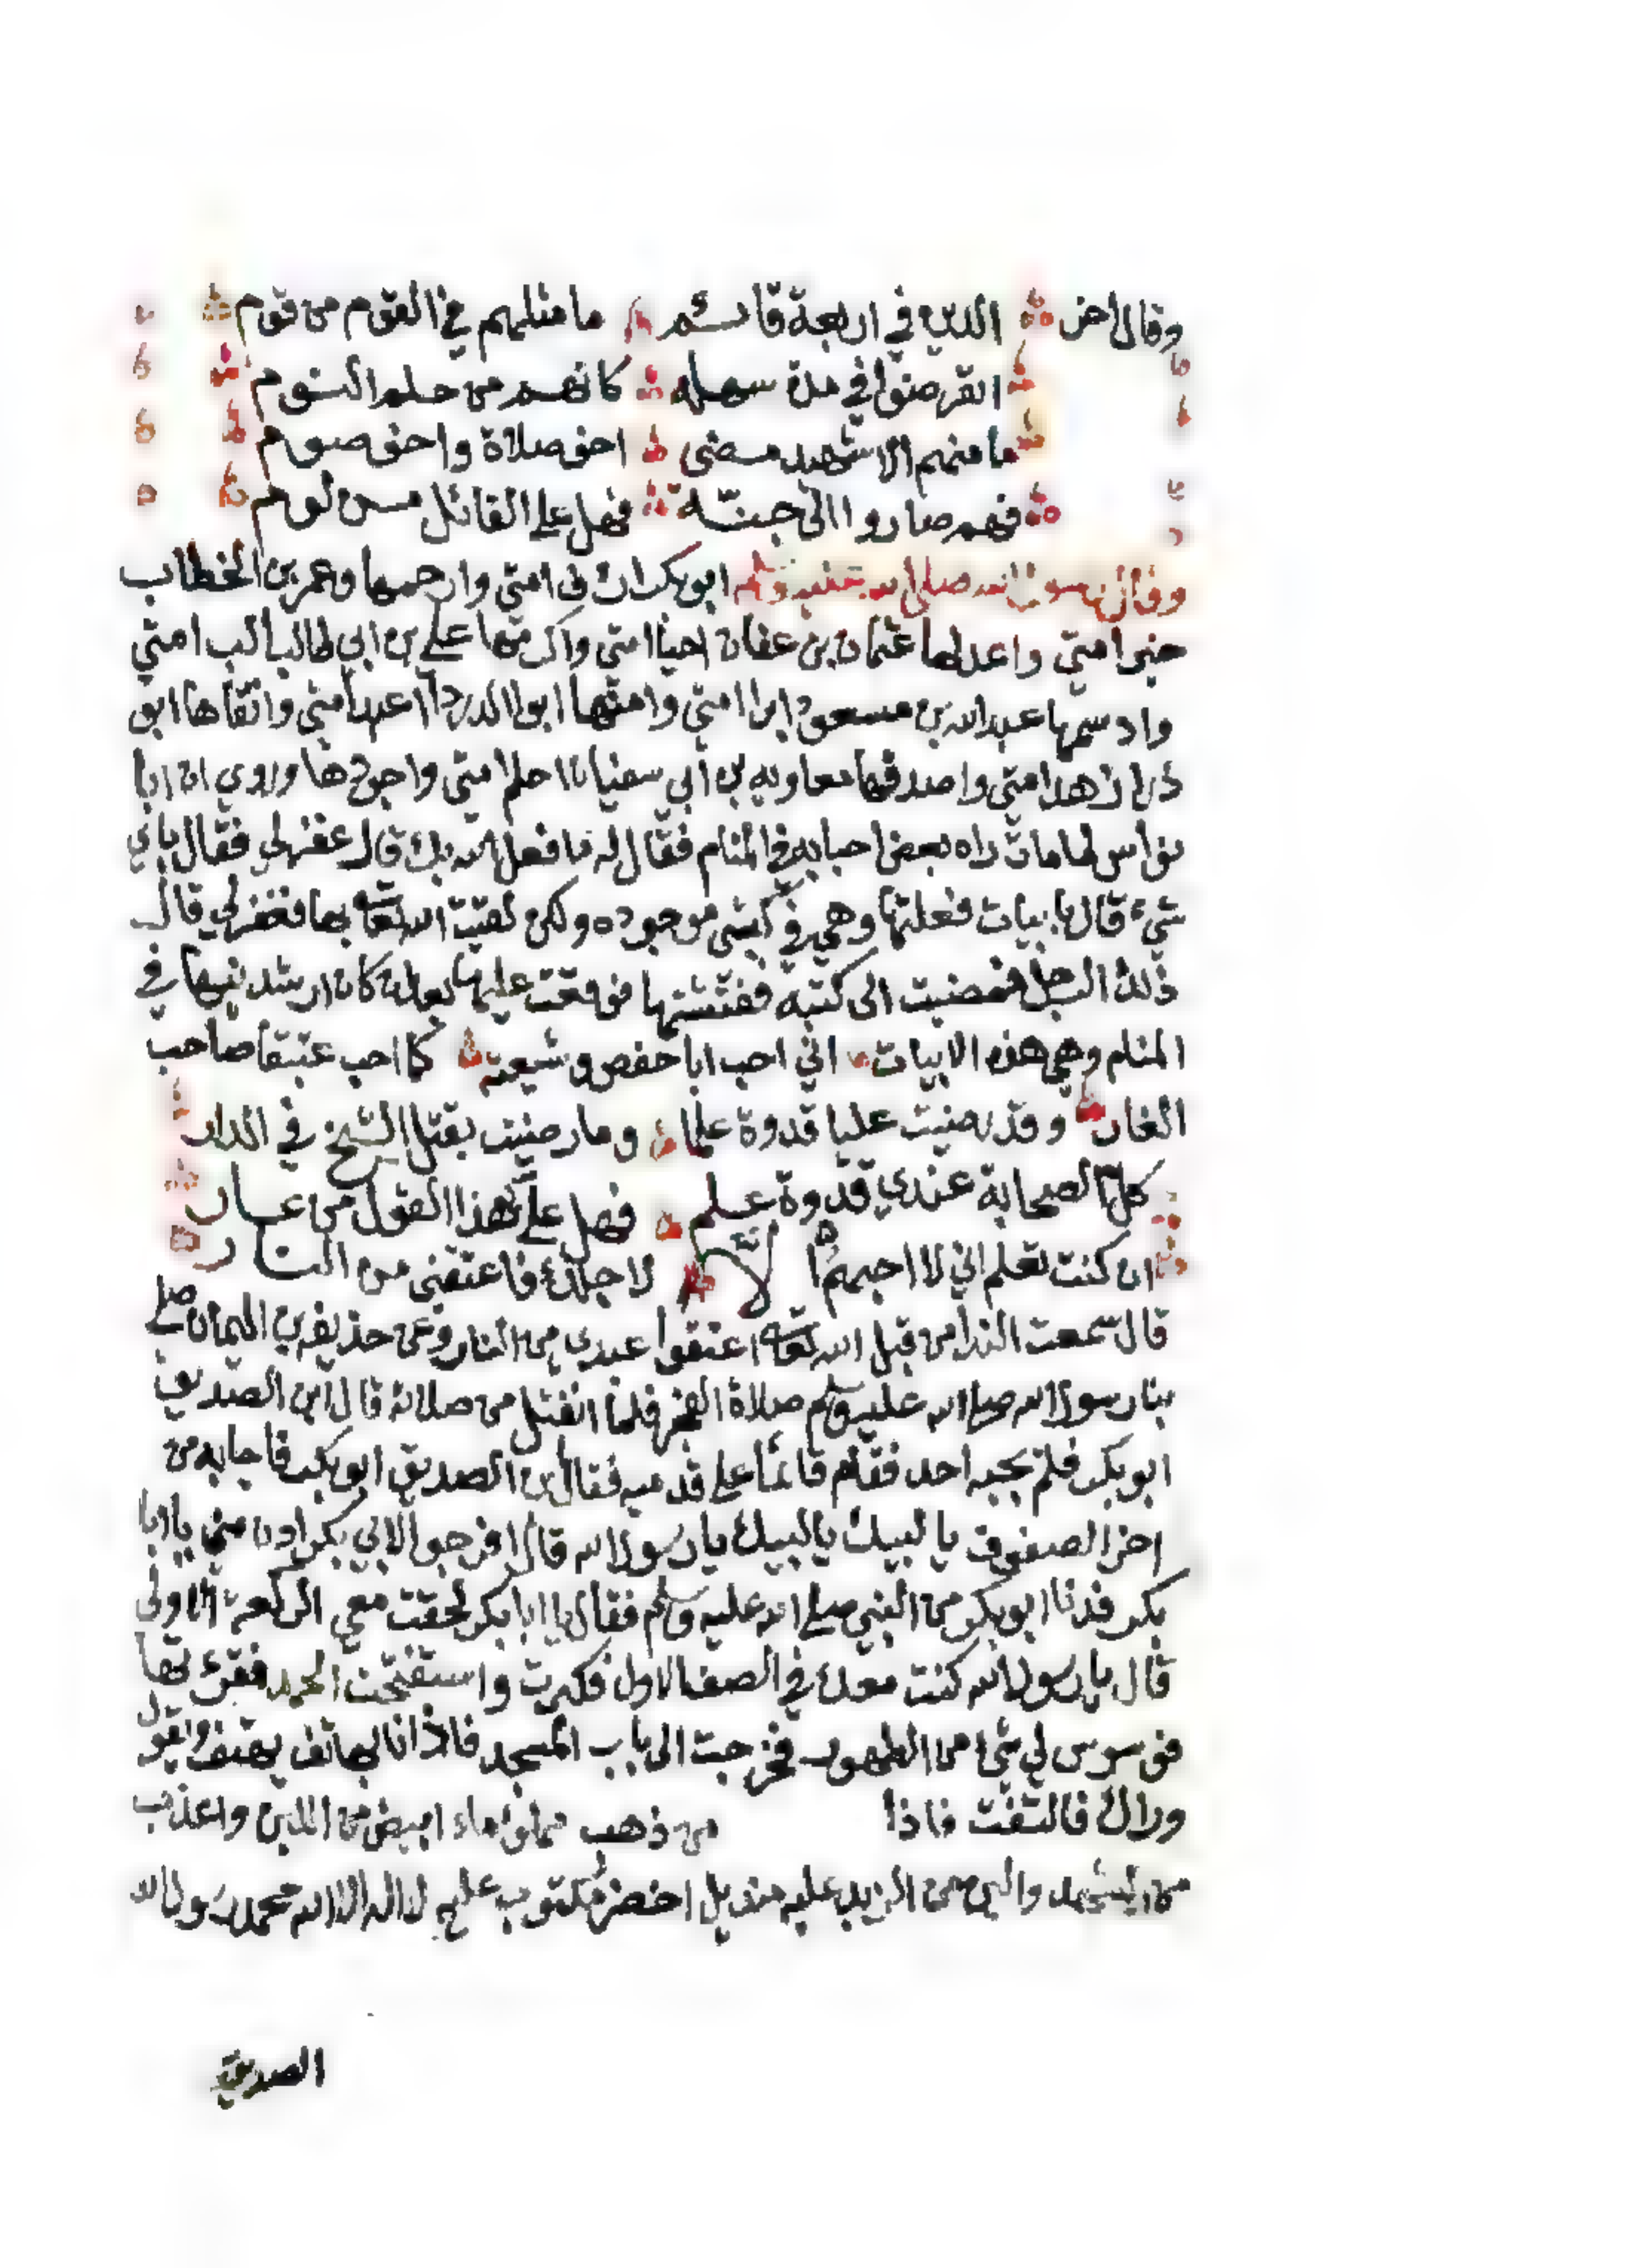 وقال اخر الدين في اربعة قائم ما مثلهم في القوم من قوم
انقرضوا في مدة سهلة كانهم من حلم النوم
ما منهم الا شهيد مضى اخو صلاة واخو صوم
فهم صاروا الى جنة فهل على القائل من لوم
وقال رسول الله صلى الله عليه وسلم ابو بكر ارأف امتي وارحمها وعمر بن الخطاب
خير امتي واعدلها عثمان بن عفان احيا امتي واكرمها علي بن ابي طالب الب امتي
واوسمها عبد الله بن مسعود ابر امتي وامنها ابو الدردآ اعبد امتي واتقاها ابو
ذر ازهد امتي واصدقها معاويه بن أبي سفيان احلم امتي واجودها وروي ان ابا
نواس لما مات راه بعض احبابه في المنام فقال له ما فعل الله بك قال غفر لي فقال باي
شيء قال بابيات فعلتها وهي في كتبي موجوده ولكن لقيت الله تعا بها فغفر لي قال
ذلك الرجل فمضيت الى كتبه ففتشتها فوقعت عليها بعد ان كان ارشدنيها في
المنام وهي هذه الابيات اني احب ابا حفص وشيعته كما احب عتيقا صاحب
الغار وقد رضيت عليا قدوة علما وما رضيت بقتل الشيخ في الدار
كل الصحابة عندي قدوة علم فهل علي بهذا القول من عار
ان كنت تعلم اني لا احبهم الا لاجلك فاعتقني من النار
قال سمعت الندا من قبل الله تعا اعتقوا عبدي من النار وعن حذيفه بن اليمان صلى
بنا رسول الله صلى الله عليه وسلم صلاة الفجر فلما انفتل من صلاته قال اين الصديق
ابو بكر فلم يجبه احد فقام قائما على قدميه فقال اين الصديق ابو بكر فاجابه من
اخر الصفوف يا لبيك يا لبيك يا رسول الله قال افرجوا لابي بكر ادن مني يا ابا
بكر فدنا ابو بكر من النبي صلى الله عليه وسلم فقال يا ابا بكر لحقت معي الركعة الاولى
قال يا رسول الله كنت معك في الصف الاول فكبرت واستفتحت الحمد فقرئتها
فوسوس لي شئ من الطهور فخرجت الى باب المسجد فاذا انا بهاتف يهتف ويقول
وراك فالتفت فاذا من ذهب مملوء ماء ابيض من اللبن واعذب
من الشهد والين من الزبد عليه منديل اخضر مكتوب عليه لا اله الا الله محمد رسول الله
الصديق